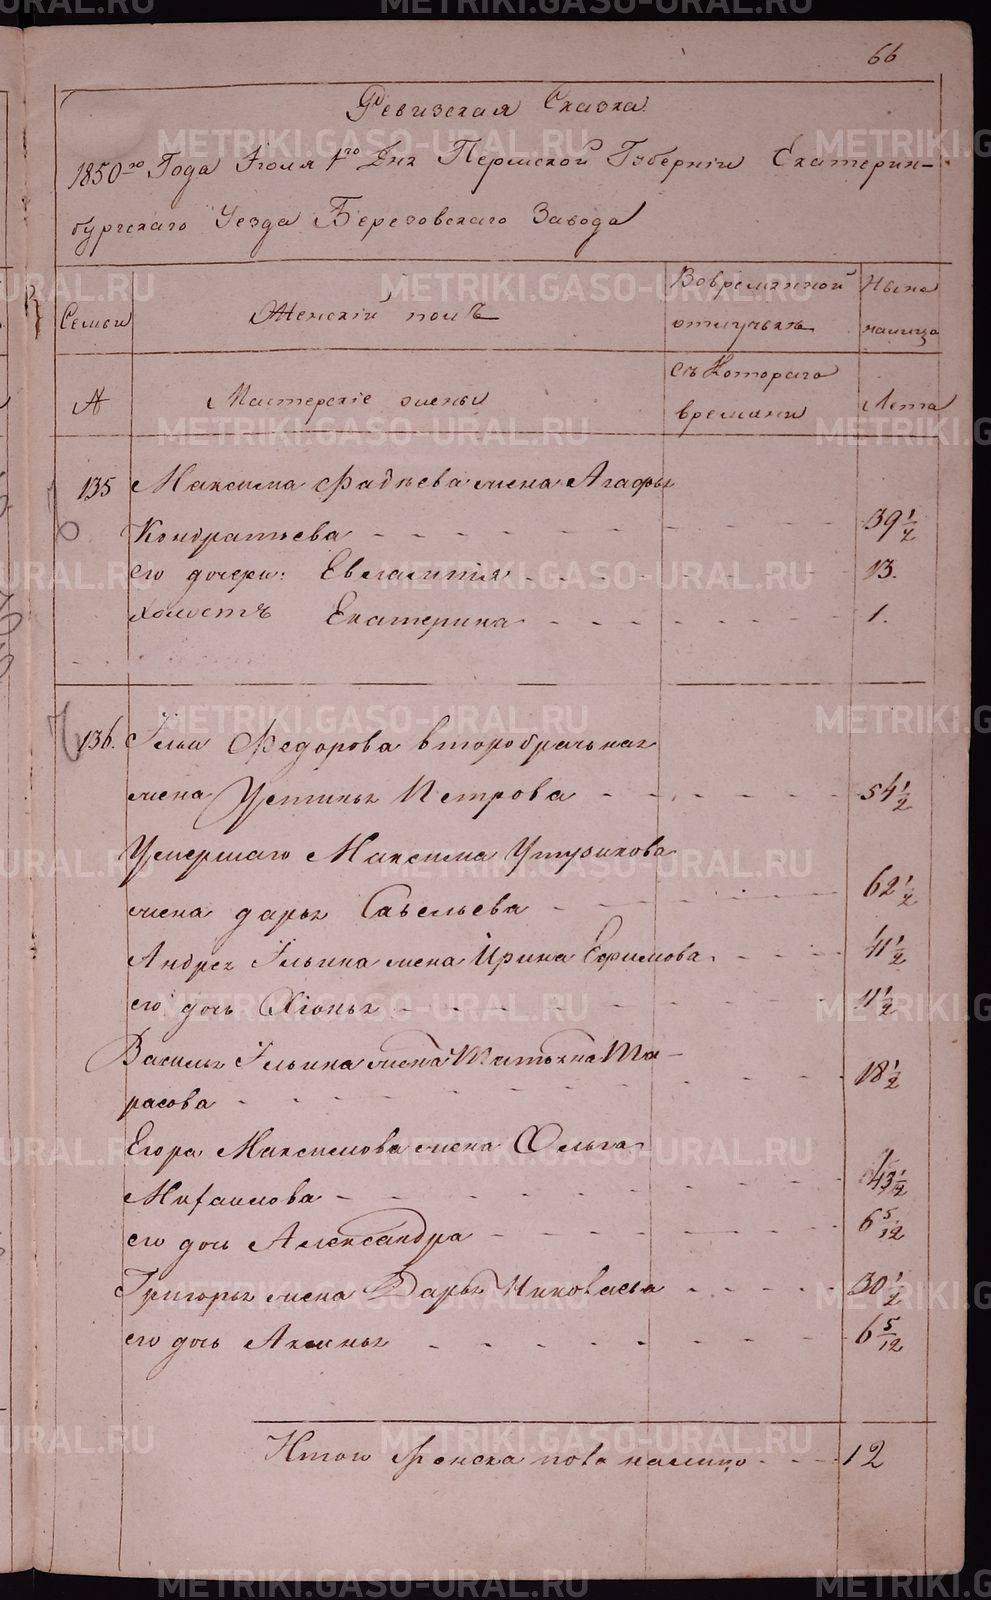 66
Ревизская Сказка
1850го Года Iюля 1го Дня Пермской Губернiи Екатерин-
бургскаго Уезда Березовскаго Завода
Семьи
Женскiй полъ
Вовременной
отлучьке
Ныне
налицо
№
Мастерскiе жены
Съ Котораго
времяни
Лета
135 Максима Фадѣева жена Агафья
Кондратьева 39 1/2
его дочери: Евлампiя 13.
Екатерина 1.
136. Ильи Федорова второбрачьная
жена Устинья Петрова 54 1/2
Умершаго Максима
жена дарья Савельева 62 1/2
Андрея Ильина жена Ирина Ефимова 41 1/2
его дочь Хiонья 11 1/2
Василья Ильина жена Татьяна Та-
расова 18 1/2
Егора Максимова жена Ольга
Михаилова 43 1/2
его дочь Александра 6 5/12
Григорья жена Дарья Николаева 30 1/2
его дочь Аксинья 6 5/12
Итого Женска пола налицо 12
METRIKI.GASO-URAL.RU